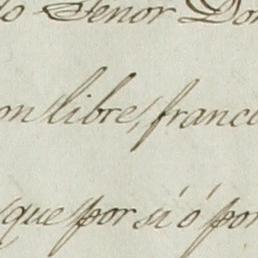 Señor Don
on libre, franc
que por si ó por